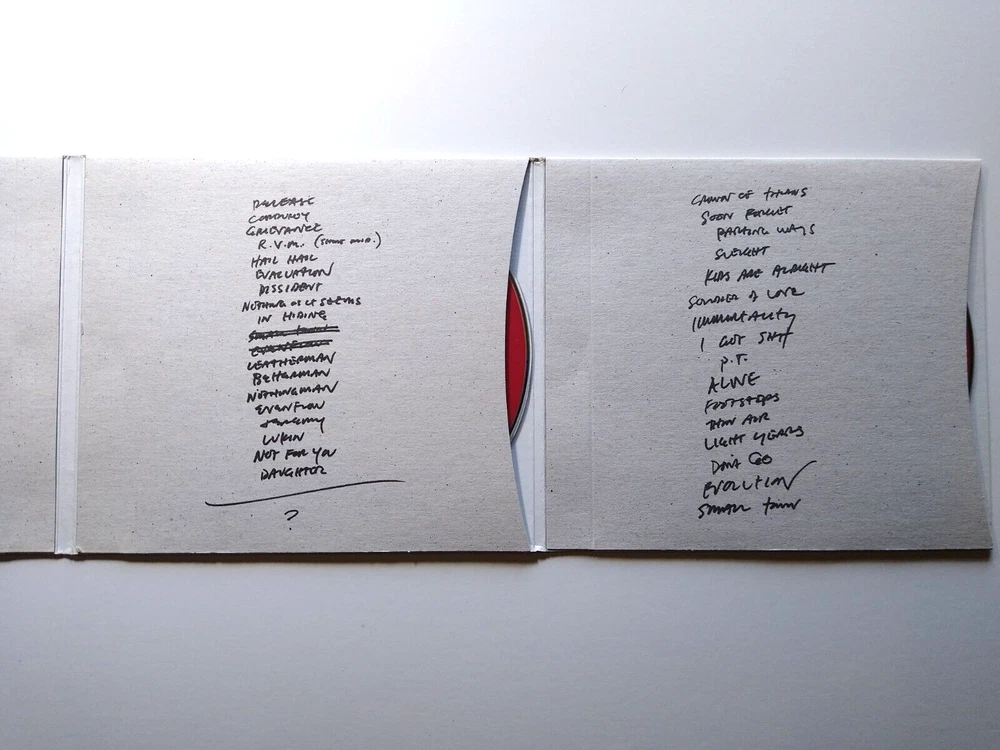 RELEASE
CORDUROY
GRIEVANCE
R.V.M. (
HAIL HAIL
EVACUATION
DISSIDENT
NOTHING AS IT SEEMS
IN HIDING
SMALL TOWN
EVENFLOW
LEATHERMAN
BETTERMAN
NOTHINGMAN
EVENFLOW
JEREMY
LUKIN
NOT FOR YOU
DAUGHTER
?
CROWN OF THORNS
SOON FORGET
PARTING WAYS
SLEIGHT
KIDS ARE ALRIGHT
SOLDIER OF LOVE
IMMORTALITY
I GOT SHIT
P.T.
ALIVE
FOOTSTEPS
THIN AIR
LIGHT YEARS
DON'T GO
EVOLUTION
SMALL TOWN